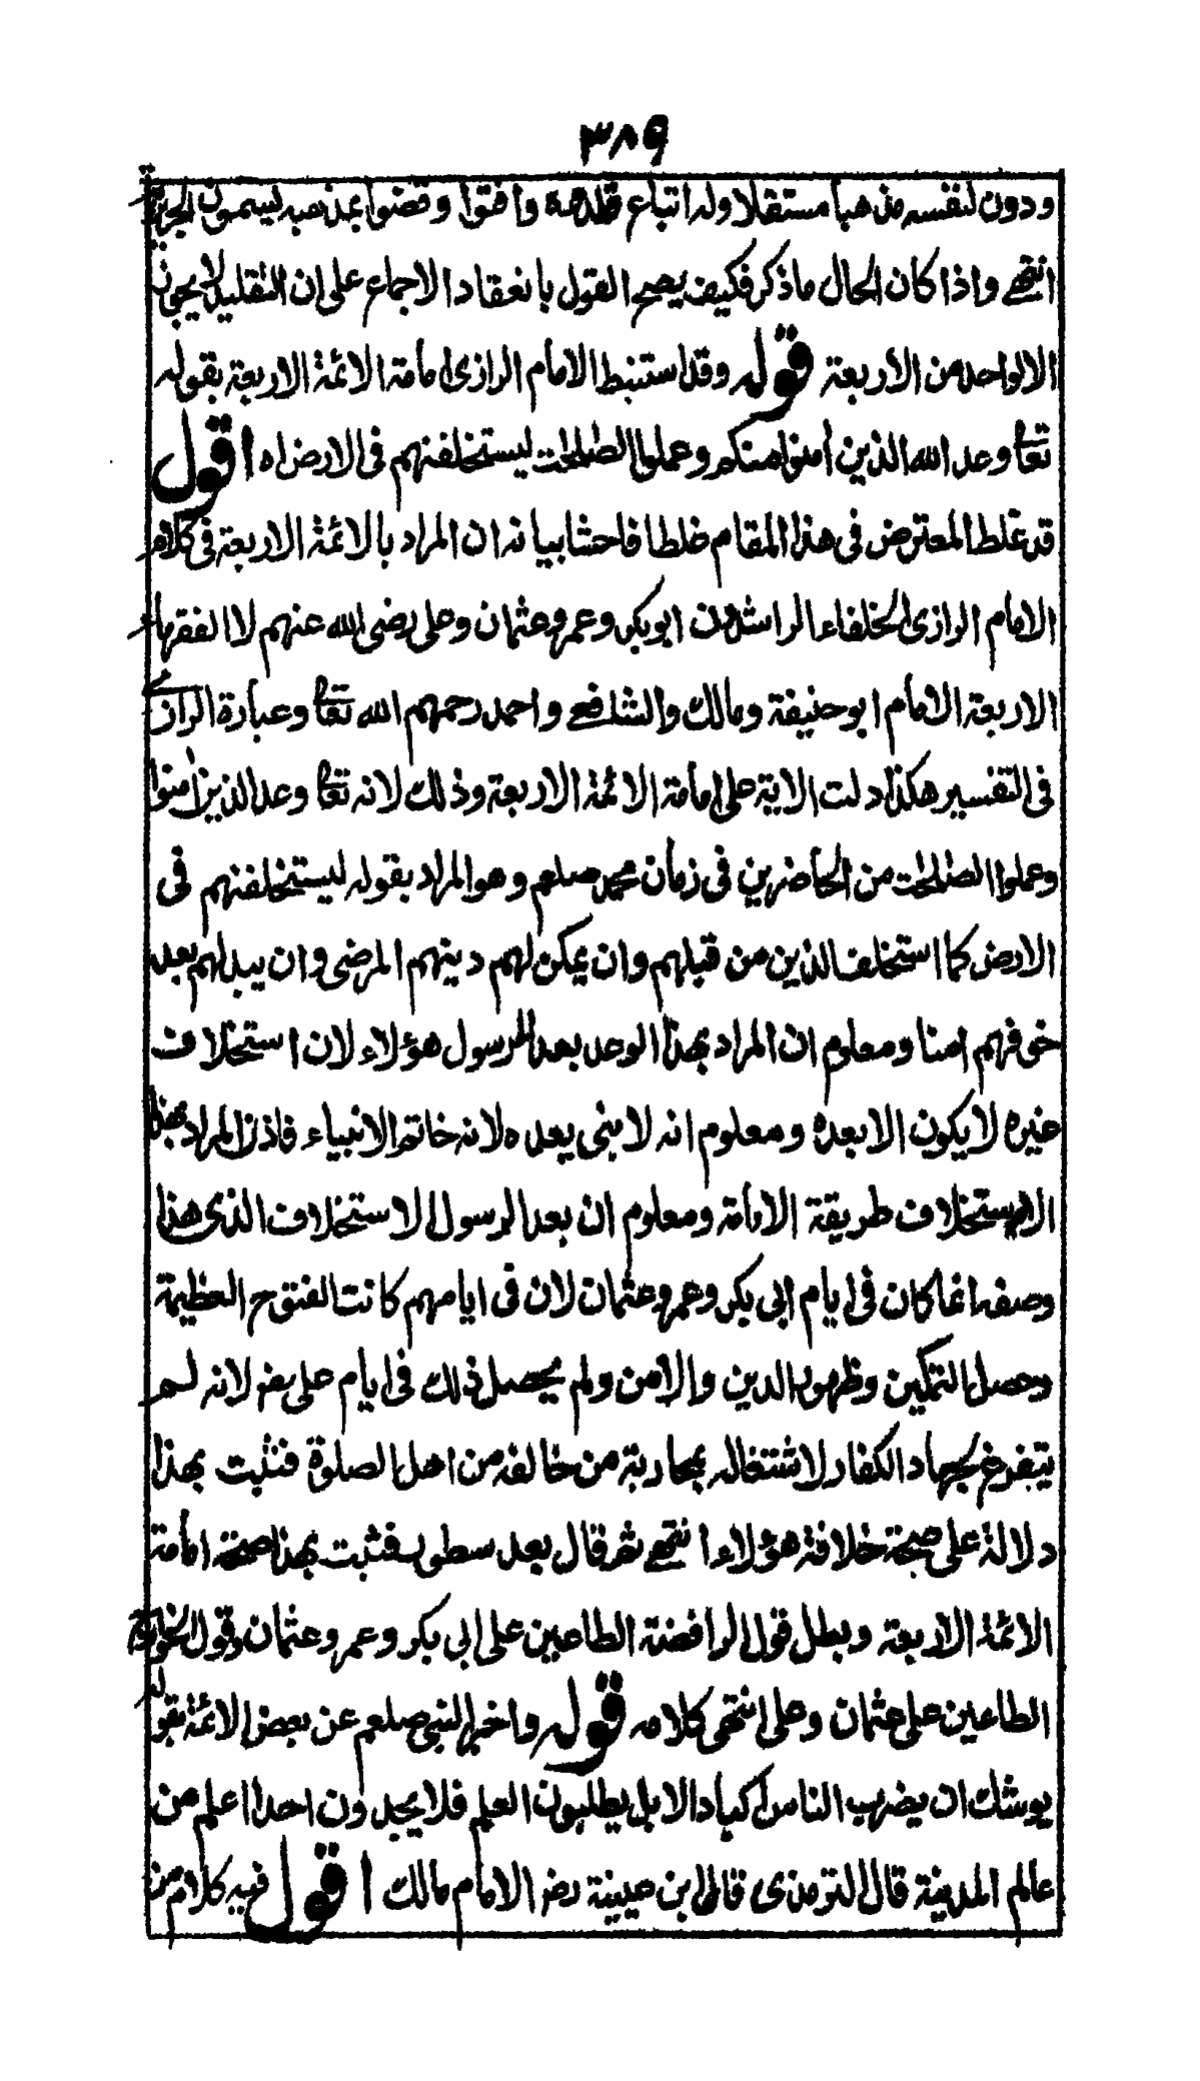 ٣٨٩
ودون لنفسه مذهبا مستقلا وله اتباع قلدوه وافتوا وقضوا بمذهبه يسمون الجريرية
انتهى واذا كان الحال ماذكر فكيف يصح القول بانعقاد الاجماع على ان التقليد لا يجوز
الا لواحد من الأربعة قوله وقد استنبط الامام الرازى امامة الائمة الاربعة بقوله
تعالى وعد الله الذين امنوا منكم وعملوا الصلحت ليستخلفنهم فى الارض اه اقول
قد غلط المعترض فى هذا المقام غلطا فاحشا بيانه ان المراد بالائمة الاربعة فى كلام
الامام الرازى الخلفاء الراشدون ابوبكر وعمر وعثمان وعلى رضى الله عنهم لا الفقهاء
الاربعة الامام ابوحنيفة ومالك والشافعى واحمد رحمهم الله تعالى وعبارة الرازى
فى التفسير هكذا دلت الاية على امامة الائمة الاربعة وذلك لانه تعالى وعد الذين امنوا
وعملوا الصلحت من الحاضرين فى زمان محمد صلعم وهو المراد بقوله ليستخلفنهم فى
الارض كما استخلف الذين من قبلهم وان يمكن لهم دينهم المرضى وان يبدلهم بعد
خوفهم امنا ومعلوم ان المراد بهذا الوعد بعد الرسول هؤلاء لان استخلاف
غيره لا يكون الا بعده ومعلوم انه لا نبى بعده لانه خاتم الانبياء فاذن المراد بهذا
الاستخلاف طريقة الامامة ومعلوم ان بعد الرسول الاستخلاف الذى هذا
وصفه انما كان فى ايام ابى بكر وعمر وعثمان لان فى ايامهم كانت الفتوح العظيمة
وحصل التمكين وظهور الدين والامن ولم يحصل ذلك فى ايام على رضـ لانه لم
يتفرغ لجهاد الكفار لاشتغاله بمحاربة من خالفه من اهل الصلوة فثبت بهذا
دلالة على صحة خلافة هؤلاء انتهى ثم قال بعد سطور فثبت بهذا صحة امامة
الائمة الاربعة وبطل قول الرافضة الطاعنين على ابى بكر وعمر وعثمان وقول الخوارج
الطاعنين على عثمان وعلى انتهى كلامه قوله واخبر النبى صلعم عن بعض الائمة بقوله
يوشك ان يضرب الناس اكباد الابل يطلبون العلم فلا يجدون احدا اعلم من
عالم المدينة قال الترمذى قال ابن عيينة رضـ الامام مالك اقول فيه كلام من